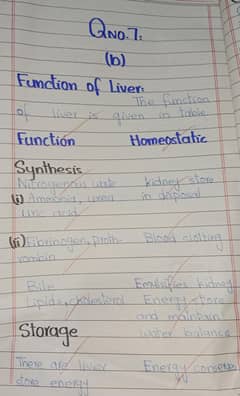 QNO.7:
(b)
Function of Liver:
The function
of liver is given in table.
Function Homeostatic
Synthesis
Nitrogenous waste kidney store
(i) Ammonia, urea in disposal
uric acid
(ii) Fibrinogen, proth- Blood clotting
rombin
Bile Emulsifies kidney
Lipids, cholesterol Energy store
and maintain
Storage water balance
There are liver Energy conserves
store energy